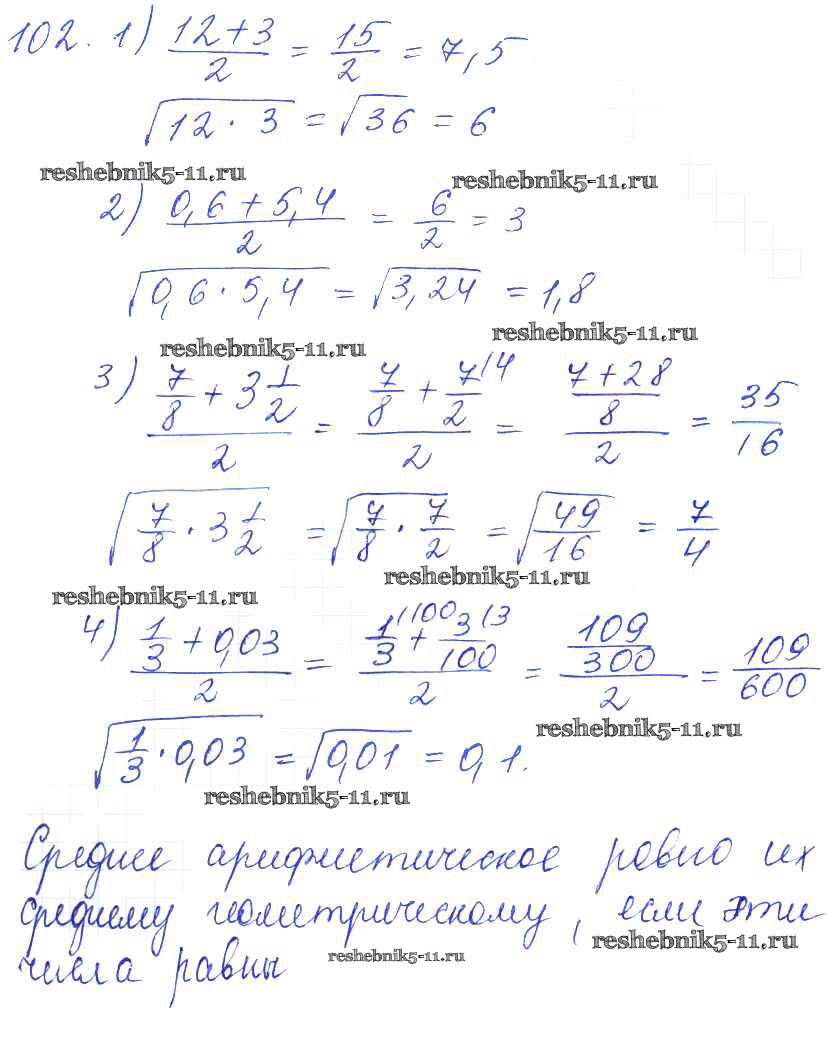 102. 1) (12+3)/2 = 15/2 = 7,5
√(12 · 3) = √36 = 6
reshebnik5-11.ru reshebnik5-11.ru
2) (0,6 + 5,4)/2 = 6/2 = 3
√(0,6 · 5,4) = √3,24 = 1,8
reshebnik5-11.ru
reshebnik5-11.ru
3) (7/8 + 3 1/2)/2 = (7/8 + 7/2 /4)/2 = ((7+28)/8)/2 = 35/16
√(7/8 · 3 1/2) = √(7/8 · 7/2) = √(49/16) = 7/4
reshebnik5-11.ru
reshebnik5-11.ru
4) (1/3 + 0,03)/2 = (1/3 /100 + 3/100 /3)/2 = (109/300)/2 = 109/600
reshebnik5-11.ru
√(1/3 · 0,03) = √0,01 = 0,1.
reshebnik5-11.ru
Среднее арифметическое равно их
среднему геометрическому, если эти
reshebnik5-11.ru
числа равны
reshebnik5-11.ru